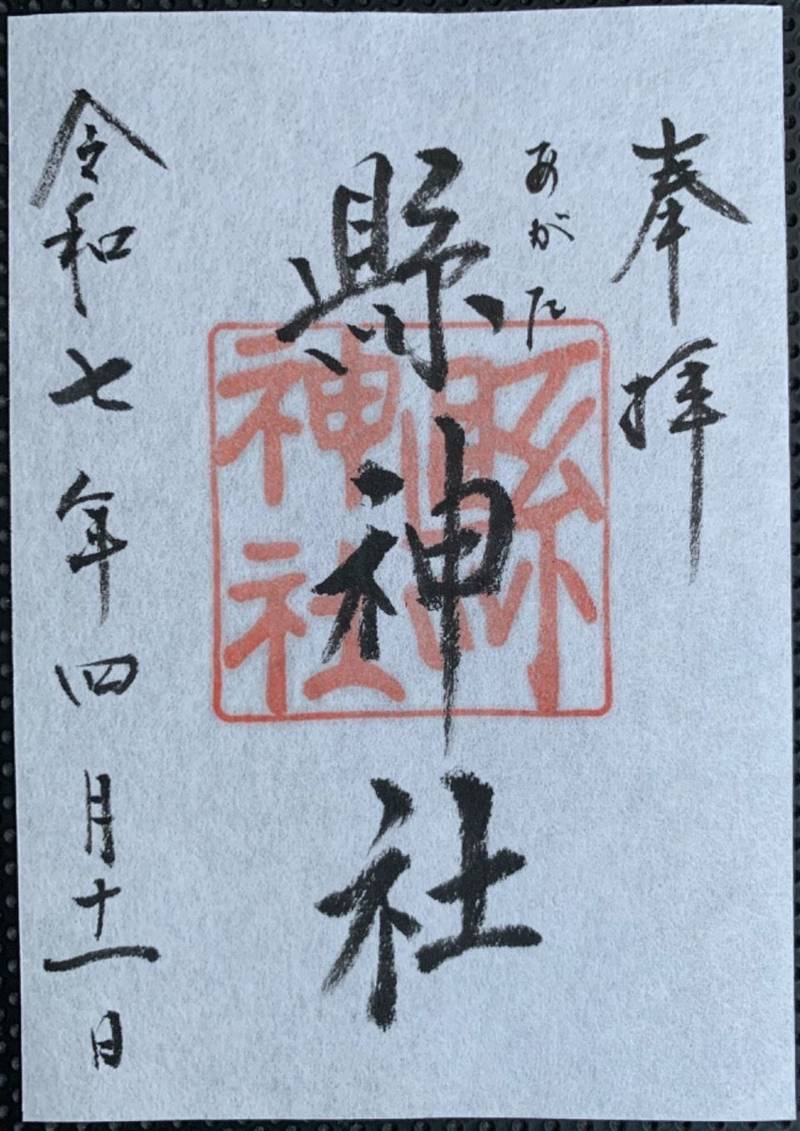 奉拝
あがた
縣神社
縣神社
令和七年四月十一日